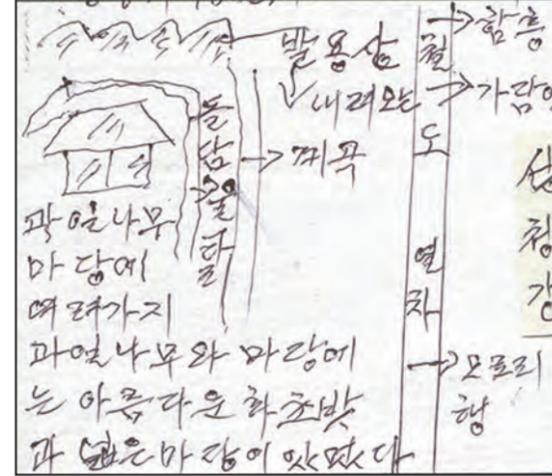 발용상
내려오는
계곡
돌담울타리
과일나무
마당에
여려가지
과일나무와 마당에
는 아름다운 화초밭
과 넓은마당이 있었다
철도
열차
함흥
모로리
행